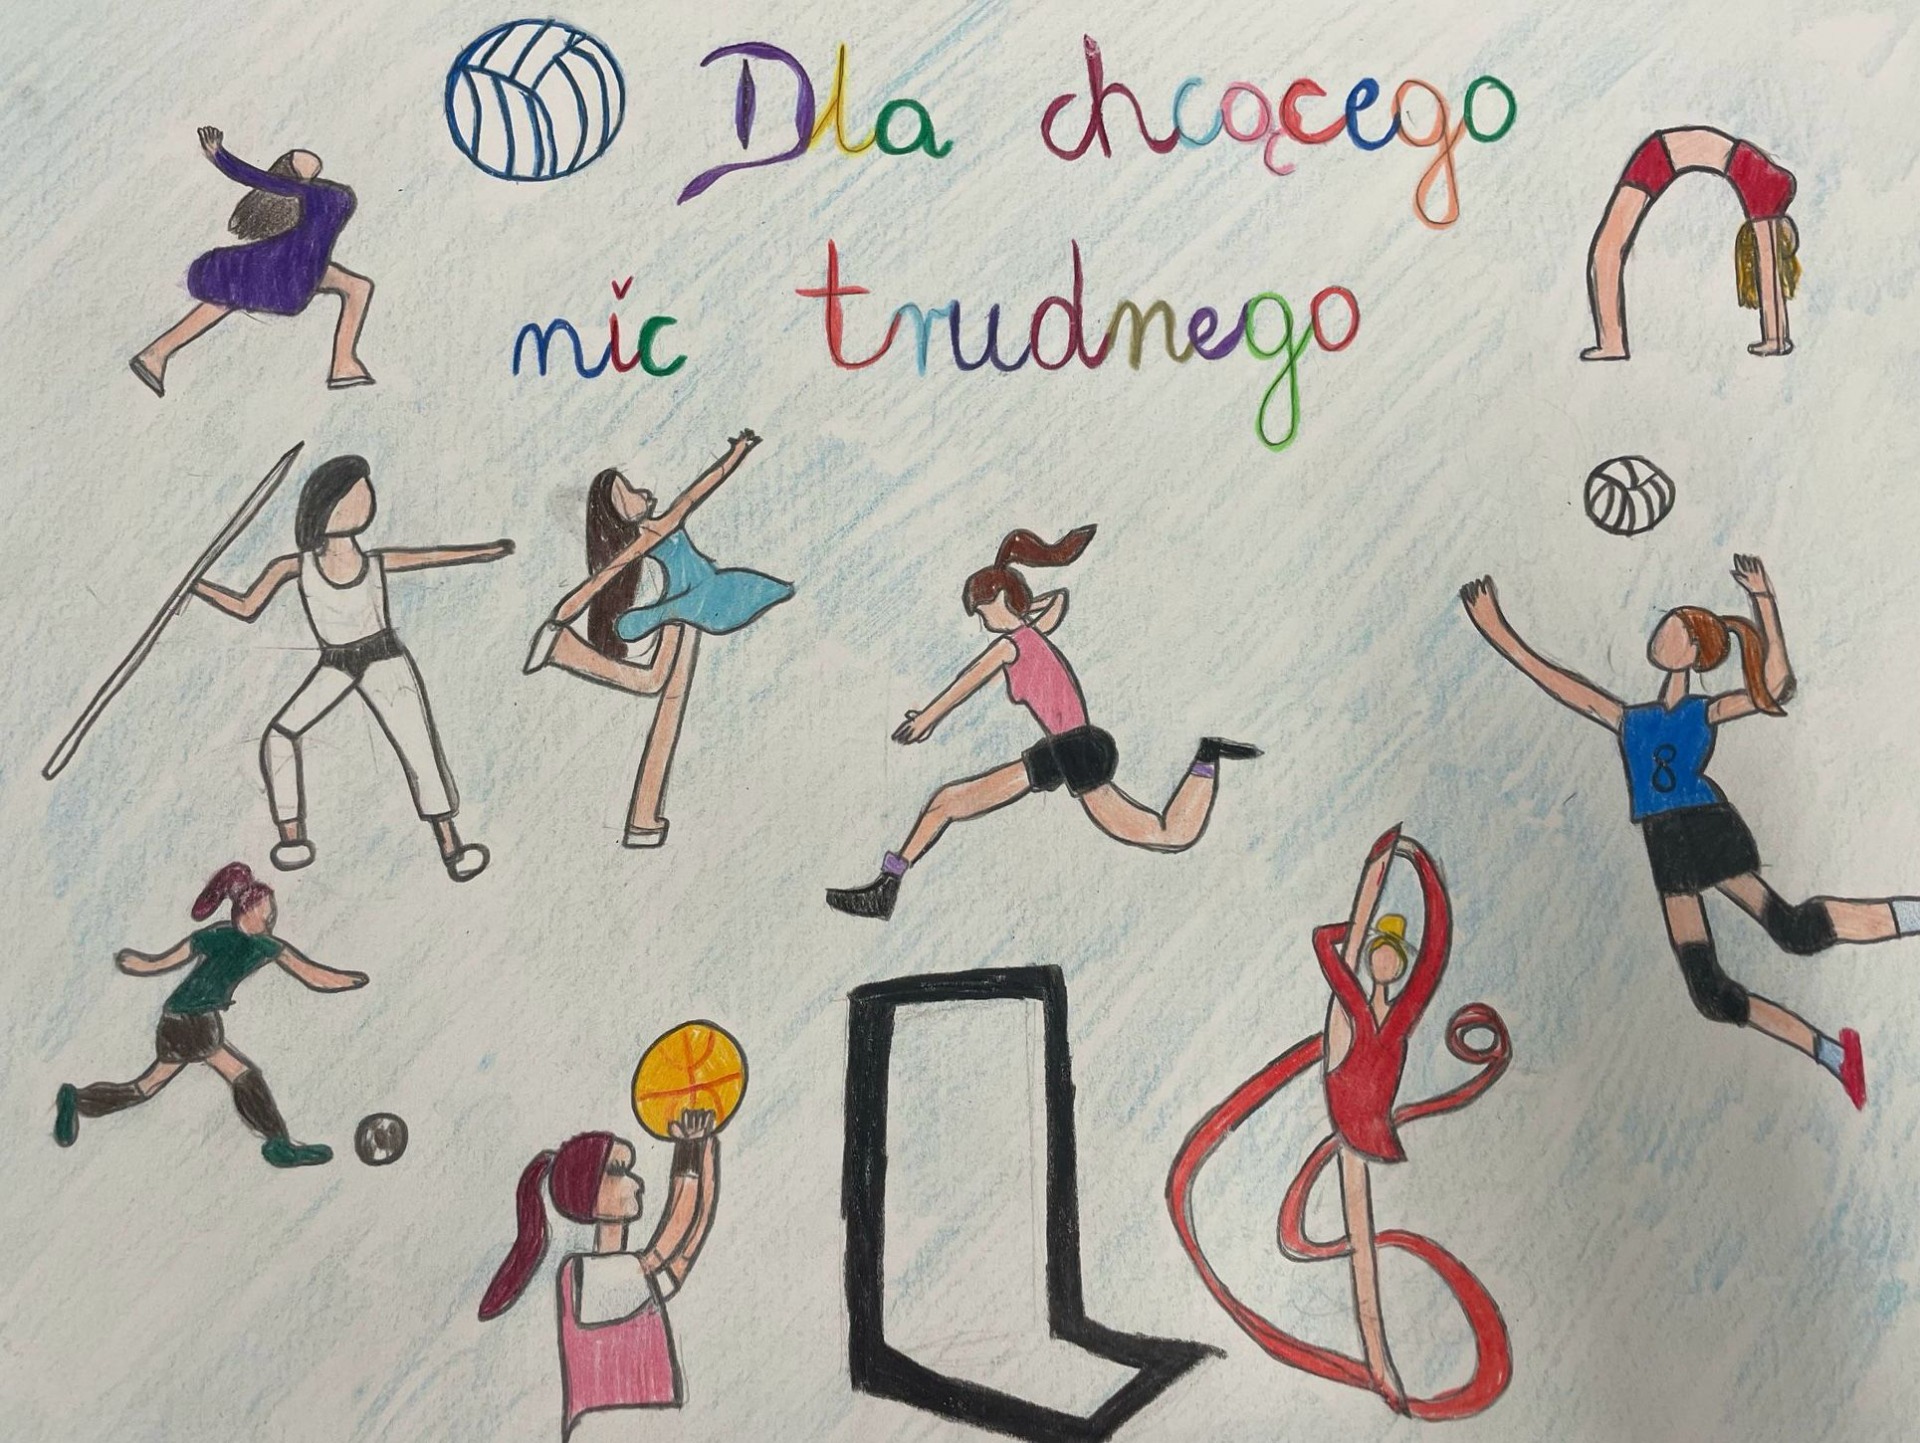 Dla chcącego
nic trudnego
8